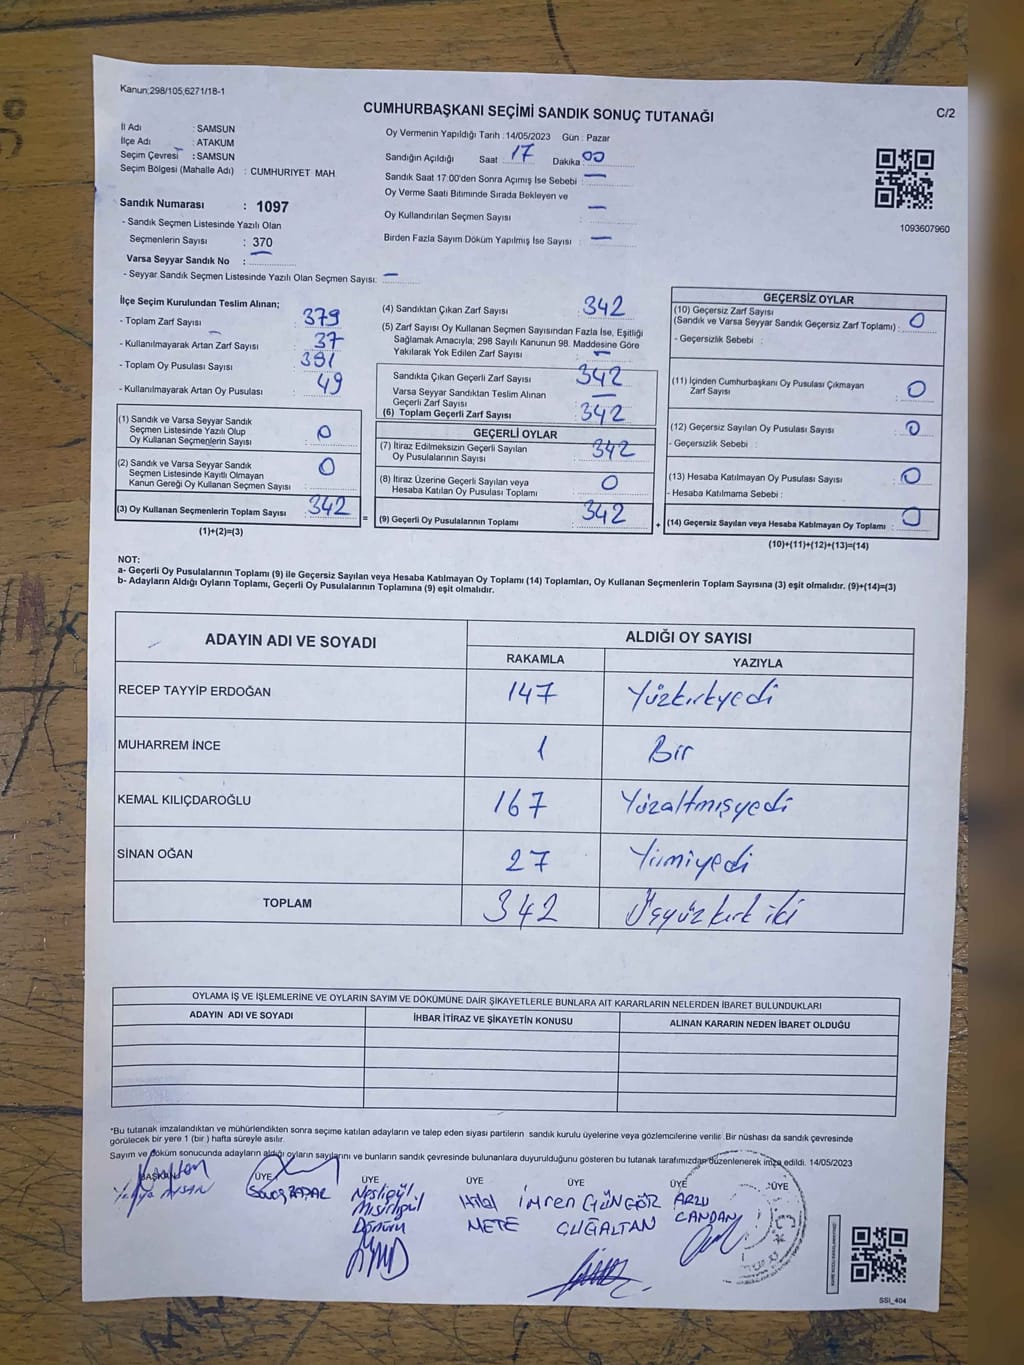 Kanun;298/105,6271/18-1
CUMHURBAŞKANI SEÇİMİ SANDIK SONUÇ TUTANAĞI
C/2
İl Adı : SAMSUN
İlçe Adı : ATAKUM
Seçim Çevresi : SAMSUN
Seçim Bölgesi (Mahalle Adı) : CUMHURIYET MAH
Sandık Numarası : 1097
- Sandık Seçmen Listesinde Yazılı Olan
Seçmenlerin Sayısı : 370
Varsa Seyyar Sandık No :
- Seyyar Sandık Seçmen Listesinde Yazılı Olan Seçmen Sayısı: —
Oy Vermenin Yapıldığı Tarih :14/05/2023 Gün : Pazar
Sandığın Açıldığı Saat 17 Dakika 00
Sandık Saat 17:00'den Sonra Açımış İse Sebebi : —
Oy Verme Saati Bitiminde Sırada Bekleyen ve
Oy Kullandırılan Seçmen Sayısı —
Birden Fazla Sayım Döküm Yapılmış İse Sayısı : —
1093607960
İlçe Seçim Kurulundan Teslim Alınan;
- Toplam Zarf Sayısı : 379
- Kullanılmayarak Artan Zarf Sayısı : 37
- Toplam Oy Pusulası Sayısı : 391
- Kullanılmayarak Artan Oy Pusulası : 49
(1) Sandık ve Varsa Seyyar Sandık
Seçmen Listesinde Yazılı Olup
Oy Kullanan Seçmenlerin Sayısı : 0
(2) Sandık ve Varsa Seyyar Sandık
Seçmen Listesinde Kayıtlı Olmayan
Kanun Gereği Oy Kullanan Seçmen Sayısı : 0
(3) Oy Kullanan Seçmenlerin Toplam Sayısı : 342
(1)+(2)=(3)
(4) Sandıktan Çıkan Zarf Sayısı : 342
(5) Zarf Sayısı Oy Kullanan Seçmen Sayısından Fazla İse, Eşitliği
Sağlamak Amacıyla; 298 Sayılı Kanunun 98. Maddesine Göre
Yakılarak Yok Edilen Zarf Sayısı : —
Sandıkta Çıkan Geçerli Zarf Sayısı : 342
Varsa Seyyar Sandıktan Teslim Alınan
Geçerli Zarf Sayısı : —
(6) Toplam Geçerli Zarf Sayısı : 342
GEÇERLİ OYLAR
(7) İtiraz Edilmeksizin Geçerli Sayılan
Oy Pusulalarının Sayısı : 342
(8) İtiraz Üzerine Geçerli Sayılan veya
Hesaba Katılan Oy Pusulası Toplamı : 0
= (9) Geçerli Oy Pusulalarının Toplamı : 342 +
GEÇERSİZ OYLAR
(10) Geçersiz Zarf Sayısı
(Sandık ve Varsa Seyyar Sandık Geçersiz Zarf Toplamı) : 0
- Geçersizlik Sebebi :
(11) İçinden Cumhurbaşkanı Oy Pusulası Çıkmayan
Zarf Sayısı : 0
(12) Geçersiz Sayılan Oy Pusulası Sayısı : 0
- Geçersizlik Sebebi :
(13) Hesaba Katılmayan Oy Pusulası Sayısı : 0
- Hesaba Katılmama Sebebi :
(14) Geçersiz Sayılan veya Hesaba Katılmayan Oy Toplamı : 0
(10)+(11)+(12)+(13)=(14)
NOT:
a- Geçerli Oy Pusulalarının Toplamı (9) ile Geçersiz Sayılan veya Hesaba Katılmayan Oy Toplamı (14) Toplamları, Oy Kullanan Seçmenlerin Toplam Sayısına (3) eşit olmalıdır. (9)+(14)=(3)
b- Adayların Aldığı Oyların Toplamı, Geçerli Oy Pusulalarının Toplamına (9) eşit olmalıdır.
ADAYIN ADI VE SOYADI ALDIĞI OY SAYISI
RAKAMLA YAZIYLA
RECEP TAYYİP ERDOĞAN 147 Yüzkırkyedi
MUHARREM İNCE 1 Bir
KEMAL KILIÇDAROĞLU 167 Yüzaltmışyedi
SİNAN OĞAN 27 Yirmiyedi
TOPLAM 342 Üçyüzkırk iki
OYLAMA İŞ VE İŞLEMLERİNE VE OYLARIN SAYIM VE DÖKÜMÜNE DAİR ŞİKAYETLERLE BUNLARA AİT KARARLARIN NELERDEN İBARET BULUNDUKLARI
ADAYIN ADI VE SOYADI İHBAR İTİRAZ VE ŞİKAYETİN KONUSU ALINAN KARARIN NEDEN İBARET OLDUĞU
*Bu tutanak imzalandıktan ve mühürlendikten sonra seçime katılan adayların ve talep eden siyasi partilerin sandık kurulu üyelerine veya gözlemcilerine verilir. Bir nüshası da sandık çevresinde
görülecek bir yere 1 (bir ) hafta süreyle asılır.
Sayım ve döküm sonucunda adayların aldığı oyların sayılarını ve bunların sandık çevresinde bulunanlara duyurulduğunu gösteren bu tutanak tarafımızdan düzenlenerek imza edildi. 14/05/2023
BAŞKAN ÜYE ÜYE ÜYE ÜYE ÜYE ÜYE
Neslıgül Hilal İmren GÜNGÖR ARZU
METE CANDAN
SSI_404